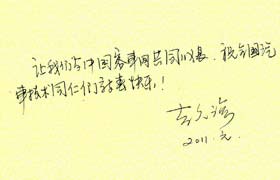 让我们与中国客车网共同成长、祝全国汽
车技术同仁们新春快乐！
2011.元.